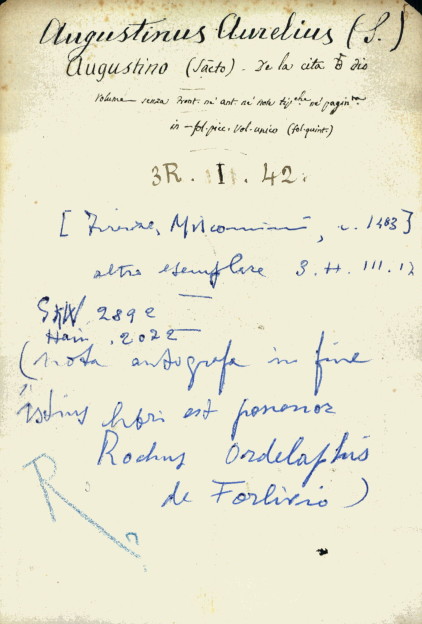 Augustinus Aurelius (S.)
Augustino (Sācto). De la cita d dio
Volume senza front. nè ant. nè note tip.che nè pagin.ra
in-fol. picc. vol. unico (fol. quint.)
3R. I. 42.
[Firenze, Miscomini, c. 1483]
altro esemplare 3. H. III. 17
GKW 2892
Hain. 2022
(nota autografa in fine
"istius libri est possessor
Rochus Ordelaphus
de Forlivio)
R.